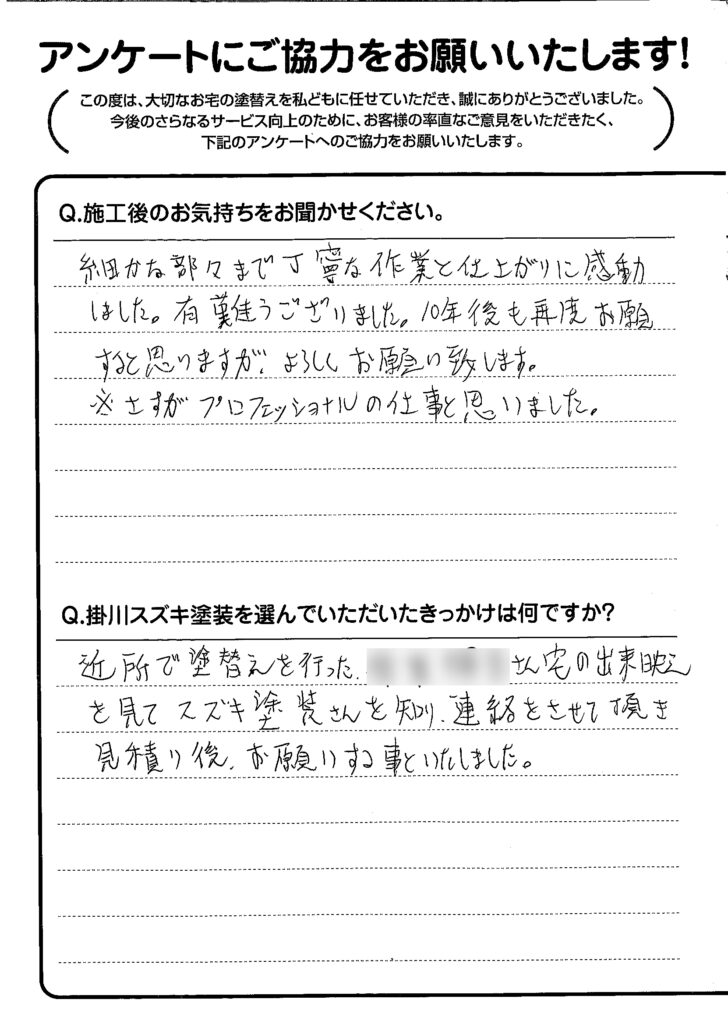 アンケートにご協力をお願いいたします!
この度は、大切なお宅の塗替えを私どもに任せていただき、誠にありがとうございました。
今後のさらなるサービス向上のために、お客様の率直なご意見をいただきたく、
下記のアンケートへのご協力をお願いいたします。
Q.施工後のお気持ちをお聞かせください。
細かな部々まで丁寧な作業と仕上がりに感動
しました。有難うございました。10年後も再度お願
すると思いますが、よろしくお願い致します。
※さすがプロフェッショナルの仕事と思いました。
Q.掛川スズキ塗装を選んでいただいたきっかけは何ですか?
近所で塗替えを行った、さん宅の出来映え
を見てスズキ塗装さんを知り、連絡をさせて頂き
見積り後、お願いする事といたしました。